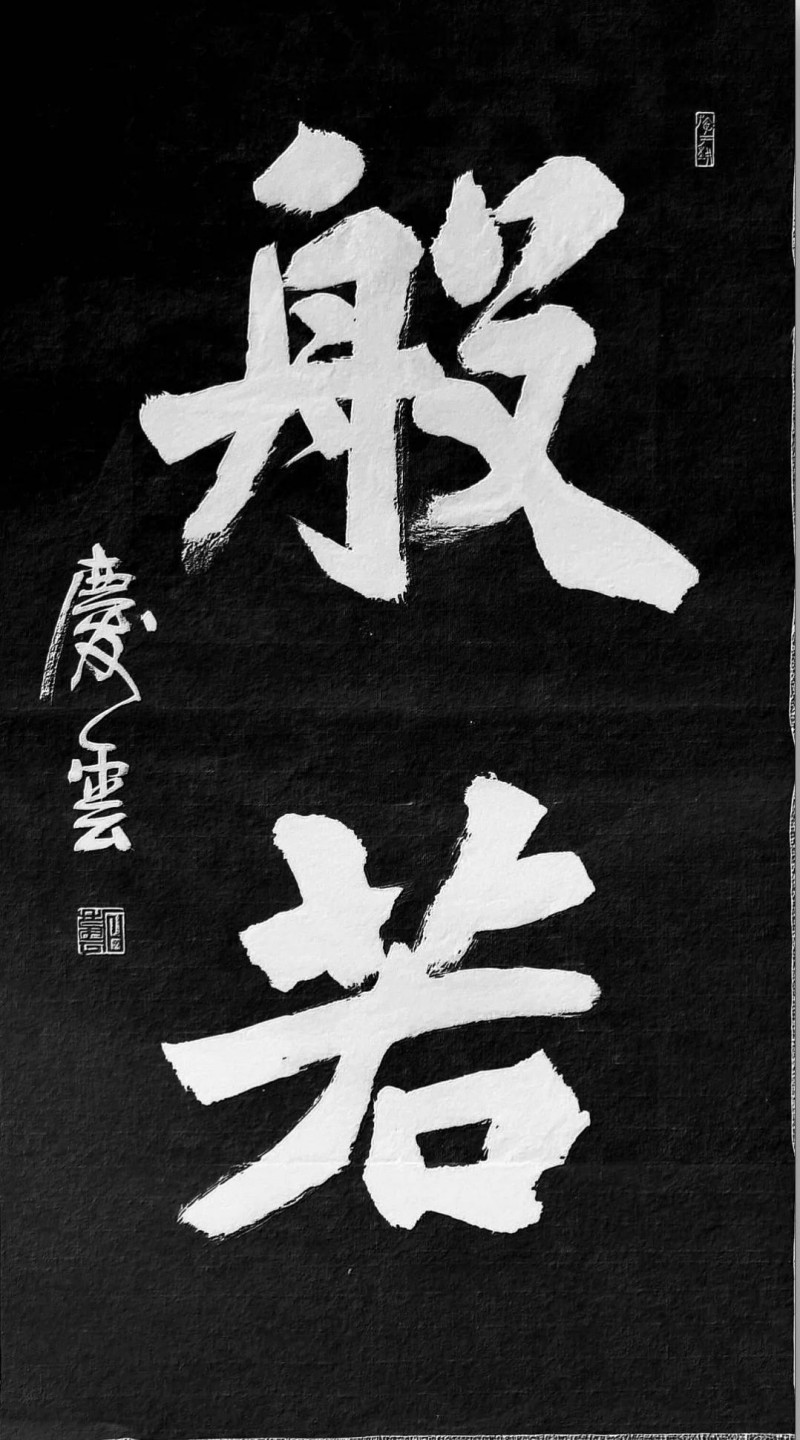 般若
慶雲